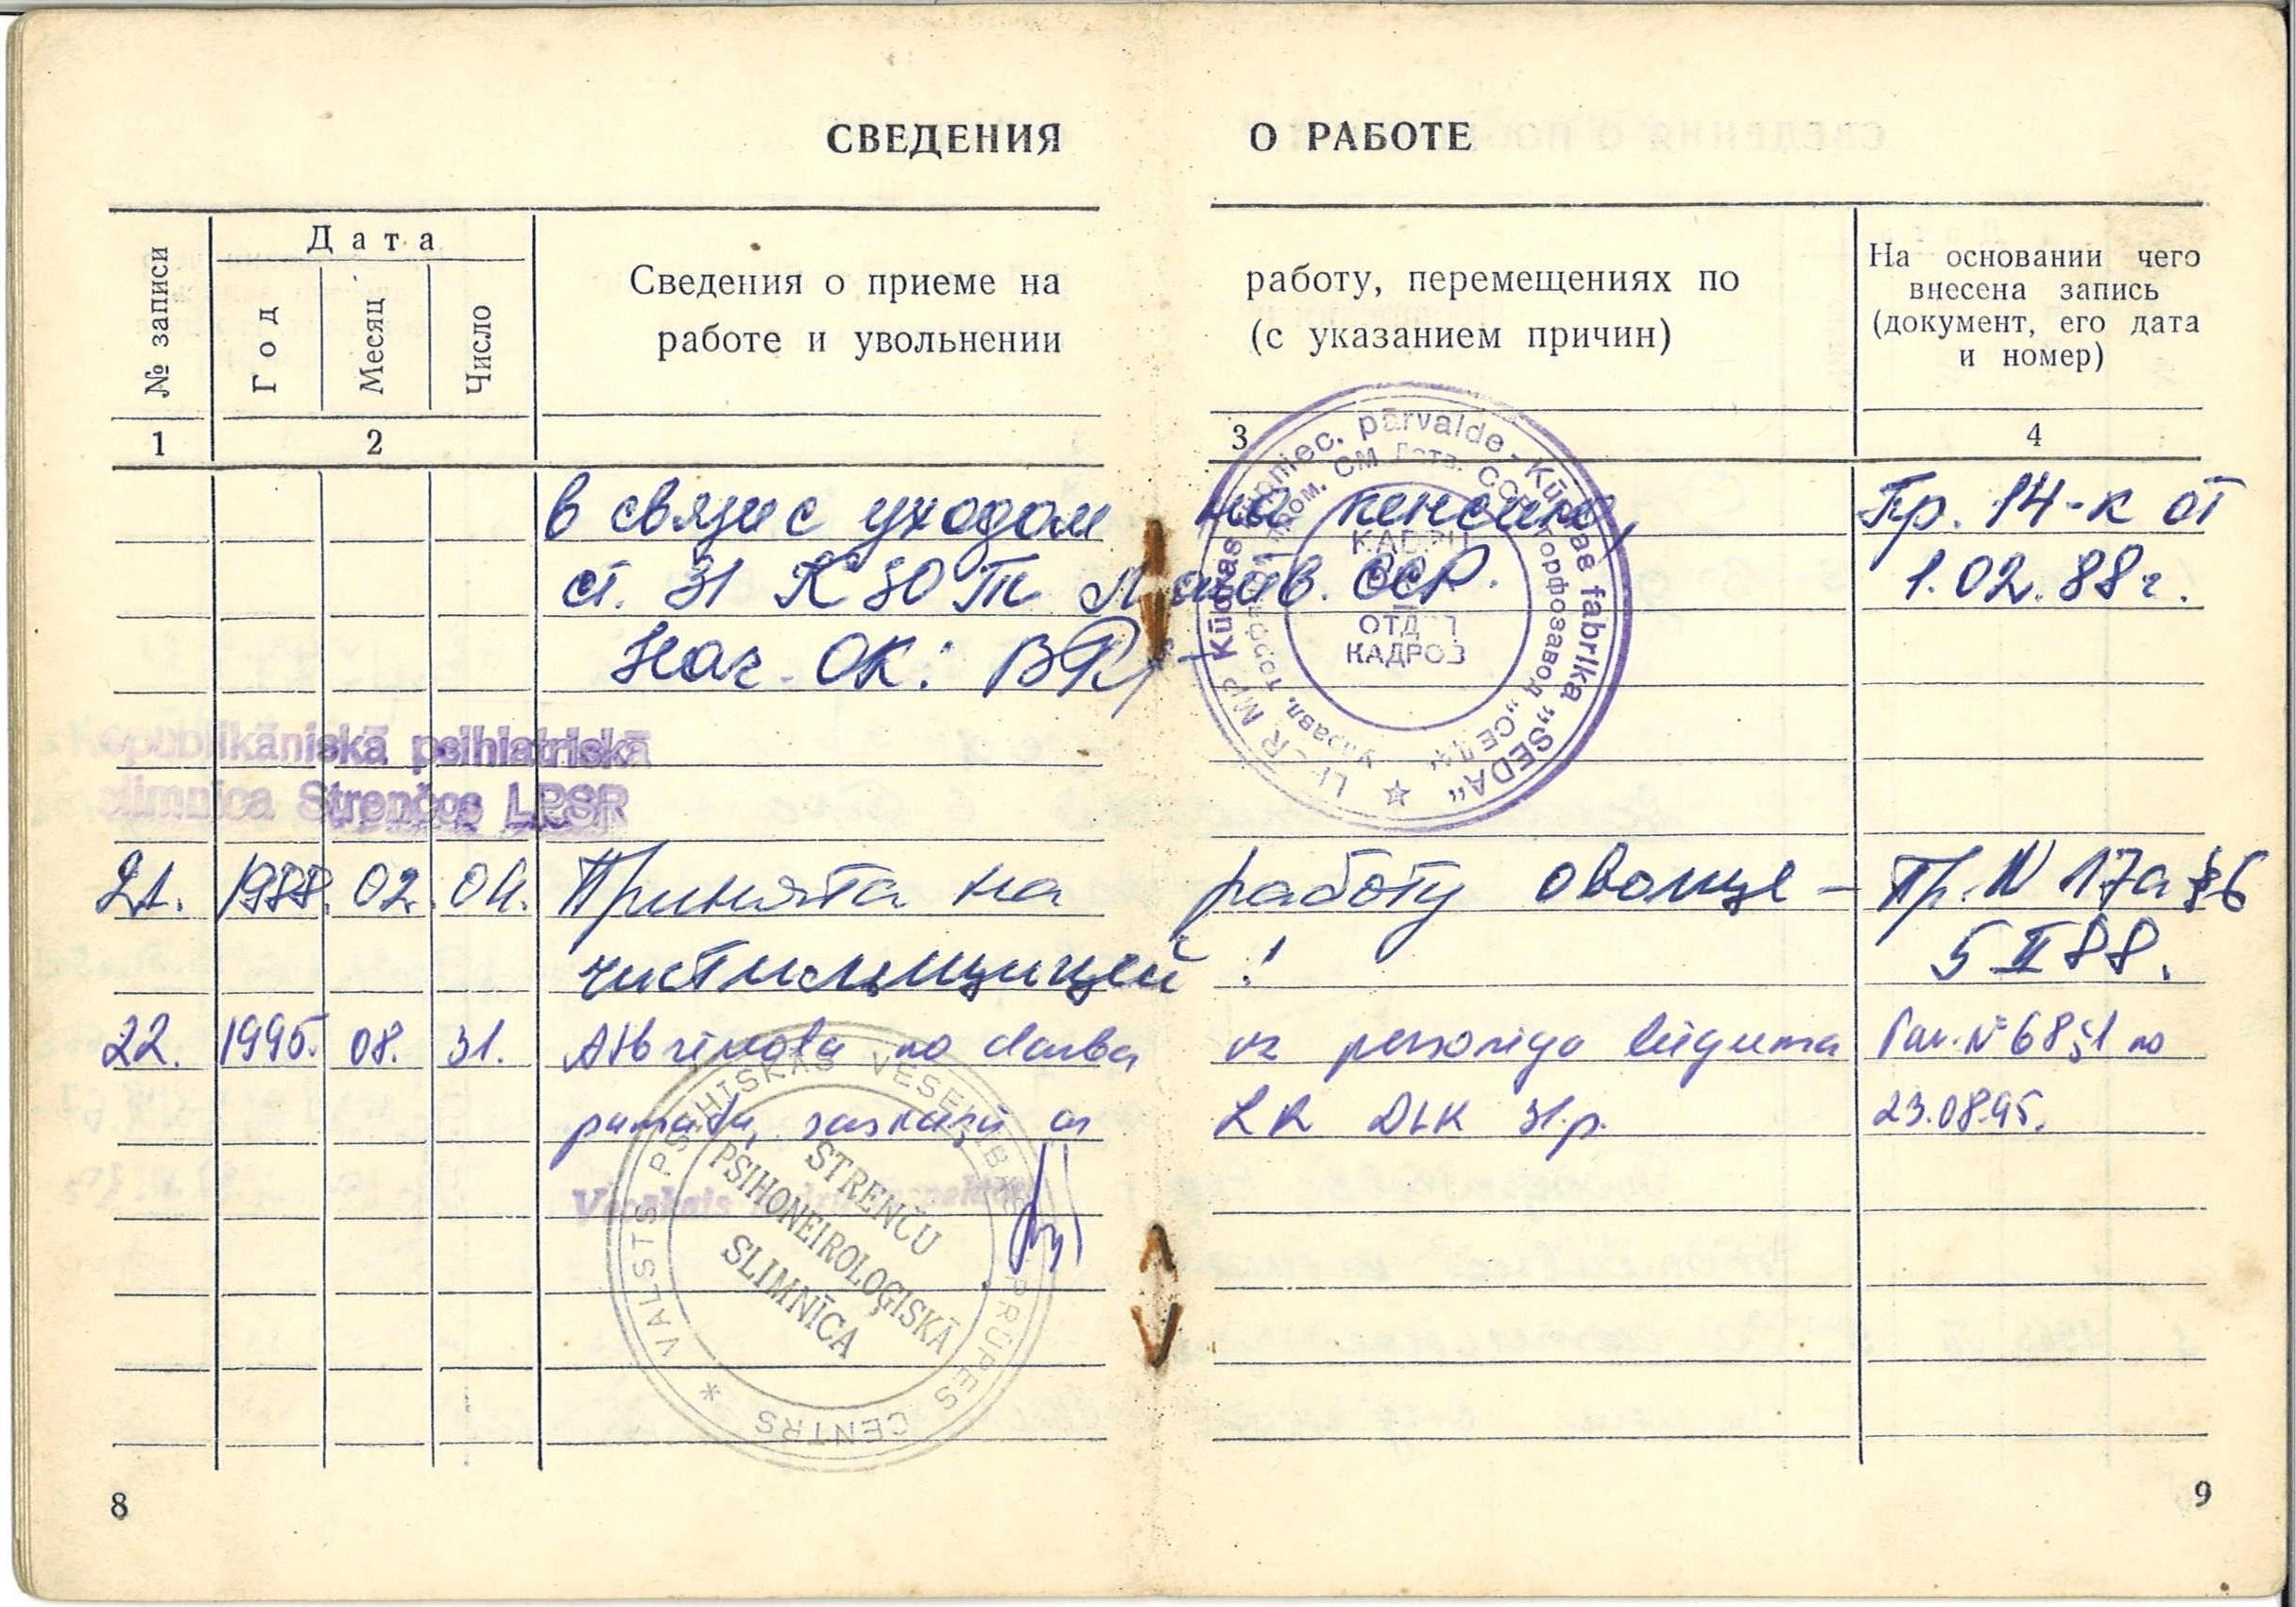 СВЕДЕНИЯ О РАБОТЕ
№ записи
Дата
Год
Месяц
Число
Сведения о приеме на работу, перемещениях по
работе и увольнении (с указанием причин)
На основании чего
внесена запись
(документ, его дата
и номер)
1 2 3 4
в связи с уходом на пенсию, Пр. 14-к от
ст. 31 КЗОТ Латв. ССР. 1.02.88г.
Нач. ОК:
Kūdras rūpniec. pārvalde - Kūdras fabrika „SEDA"
торфозавод „СЕДА"
ОТДЕЛ
КАДРОВ
Republikāniskā psihiatriskā
slimnīca Strenčos LPSR
21. 1988. 02. 04. Принята на работу овоще- Пр. N 17а §6
чистильщицей! 5 II 88.
22. 1995. 08. 31. Atbrīvota no darba uz personīga lūguma Pav. N° 68 §1 no
pamata, saskaņā ar LR DLK 31.p. 23.08.95.
Vecākais
VALSTS PSIHISKĀS VESELĪBAS APRŪPES CENTRS *
STRENČU
PSIHONEIROLOĢISKĀ
SLIMNĪCA
8
9